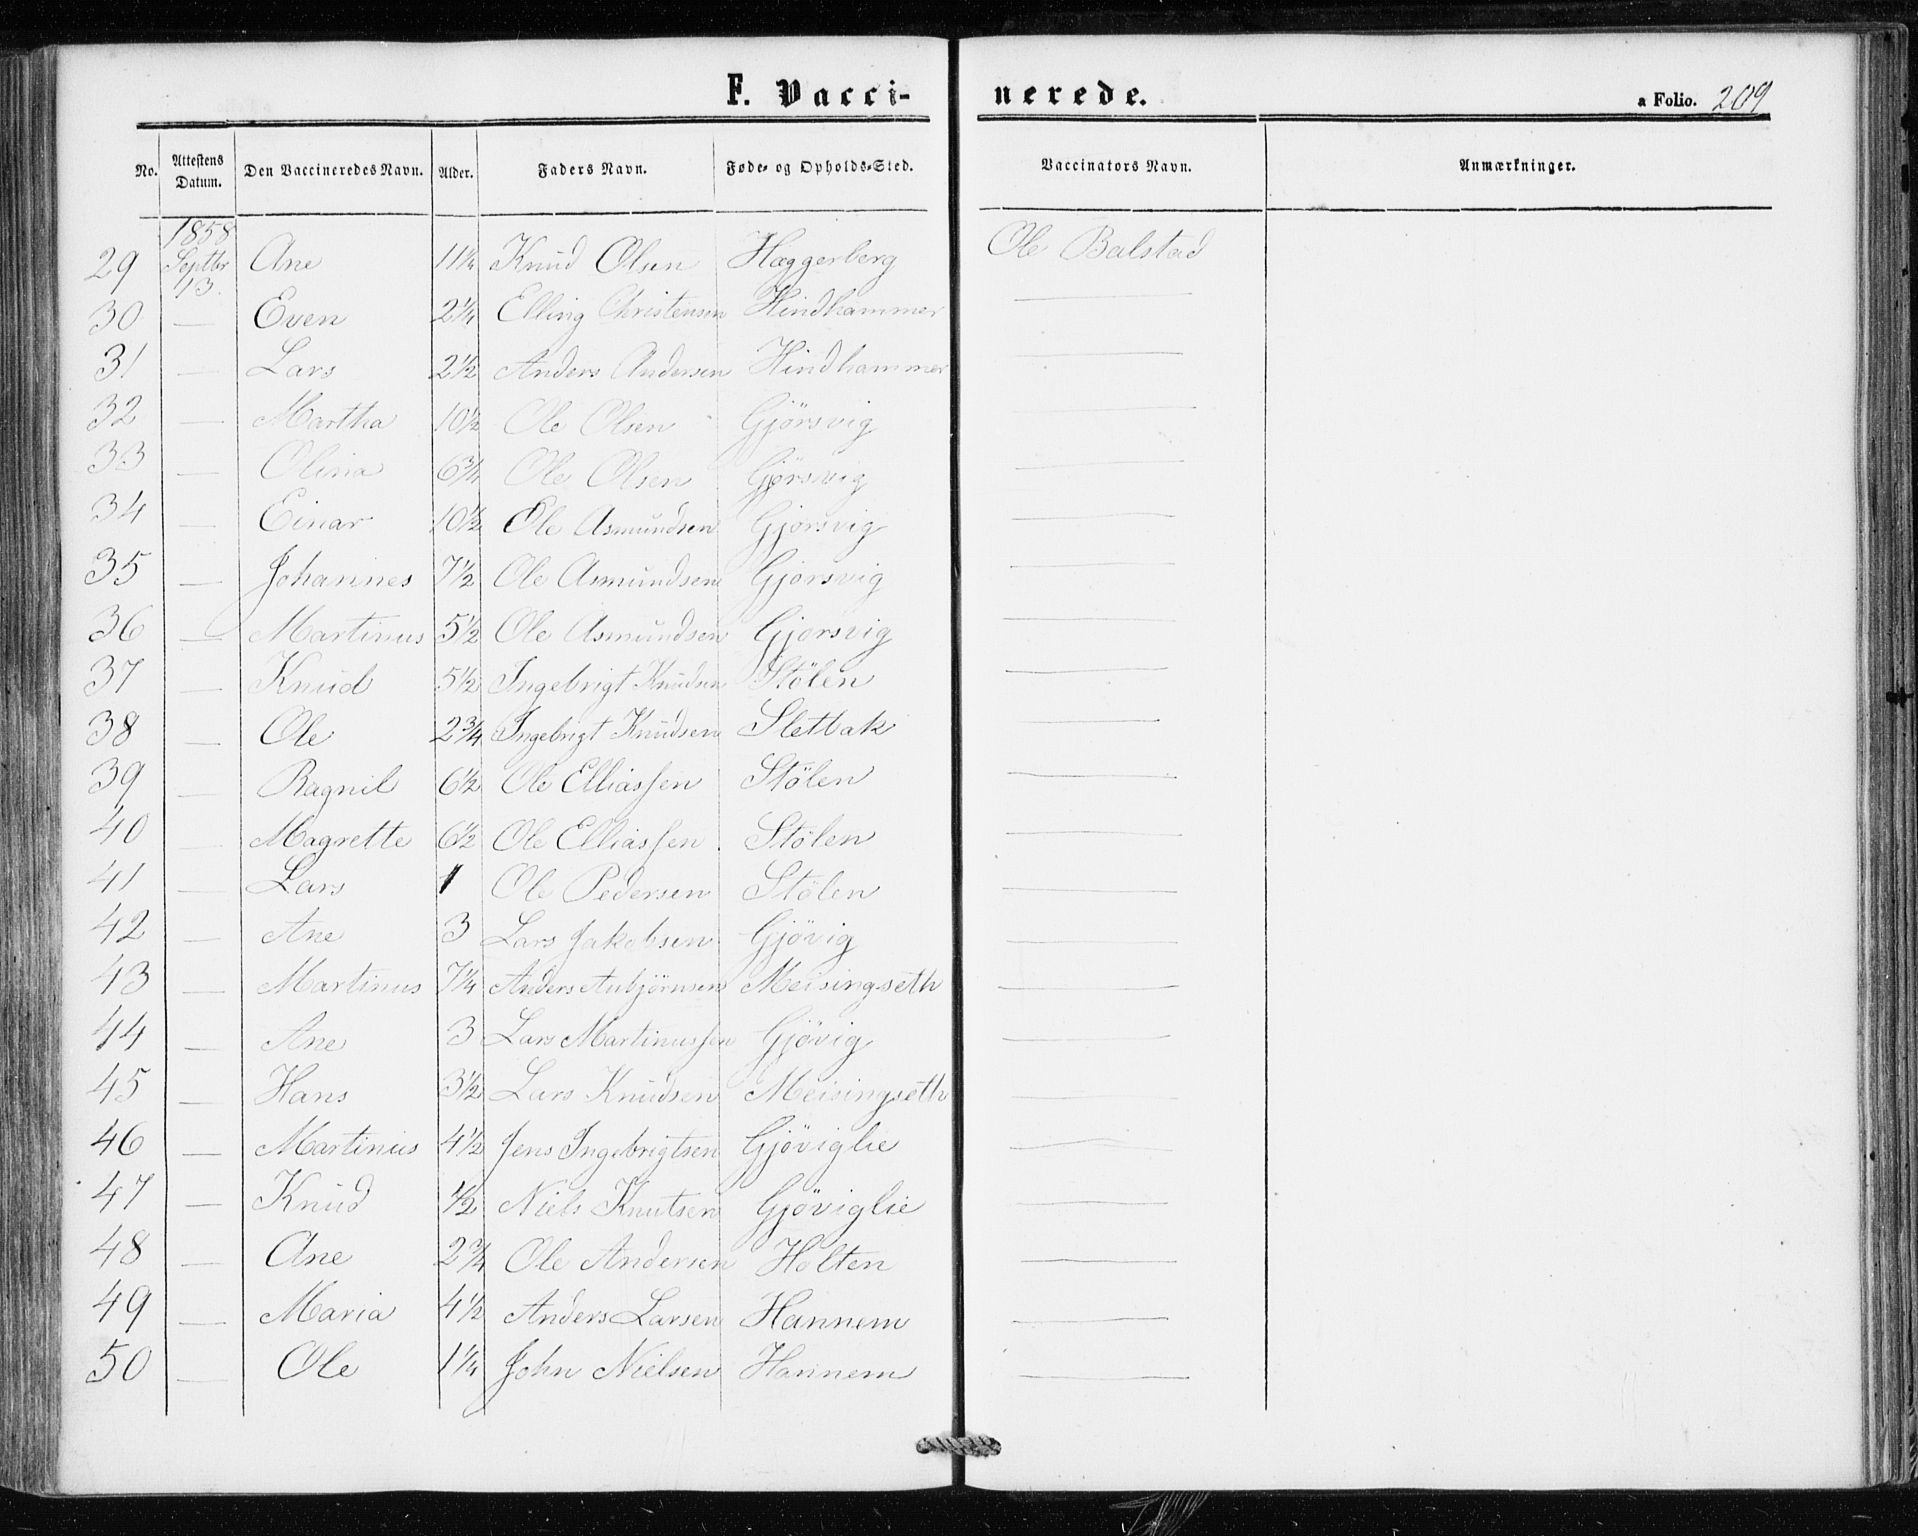 F. Vacci-nerede. a Folio. 209
No. Attestens Datum. Den Vaccineredes Navn. Alder. Faders Navn. Føde- og Opholds-Sted. Vaccinators Navn. Anmærkninger.
1858
29 Septbr 13. Ane 11 1/4 Knud Olsen Hæggerberg Ole Balstad
30 — Even 2 1/4 Elling Christensen Hindhammer —
31 — Lars 2 1/2 Anders Andersen Hindhammer —
32 — Martha 10 1/2 Ole Olsen Gjörsvig —
33 — Olina 6 3/4 Ole Olsen Gjörsvig —
34 — Einar 10 1/2 Ole Asmundsen Gjörsvig —
35 — Johannes 7 1/2 Ole Asmundsen Gjörsvig —
36 — Martinus 5 1/2 Ole Asmundsen Gjörsvig —
37 — Knud 5 1/2 Ingebrigt Knudsen Stölen —
38 — Ole 2 3/4 Ingebrigt Knudsen Sletbak —
39 — Ragnil 6 1/2 Ole Elliassen Stölen —
40 — Magrette 6 1/2 Ole Elliassen Stölen —
41 — Lars 1 Ole Pedersen Stölen —
42 — Ane 3 Lars Jakobsen Gjövig —
43 — Martinus 7 1/4 Anders Asbjörnsen Meisingseth —
44 — Ane 3 Lars Martinussen Gjövig —
45 — Hans 3 1/2 Lars Knudsen Meisingseth —
46 — Martinus 4 1/2 Jens Ingebrigtsen Gjöviglie —
47 — Knud 1/2 Niels Knutsen Gjöviglie —
48 — Ane 2 3/4 Ole Andersen Holten —
49 — Maria 4 1/2 Anders Larsen Hannem —
50 — Ole 1 1/4 John Nielsen Hannem —